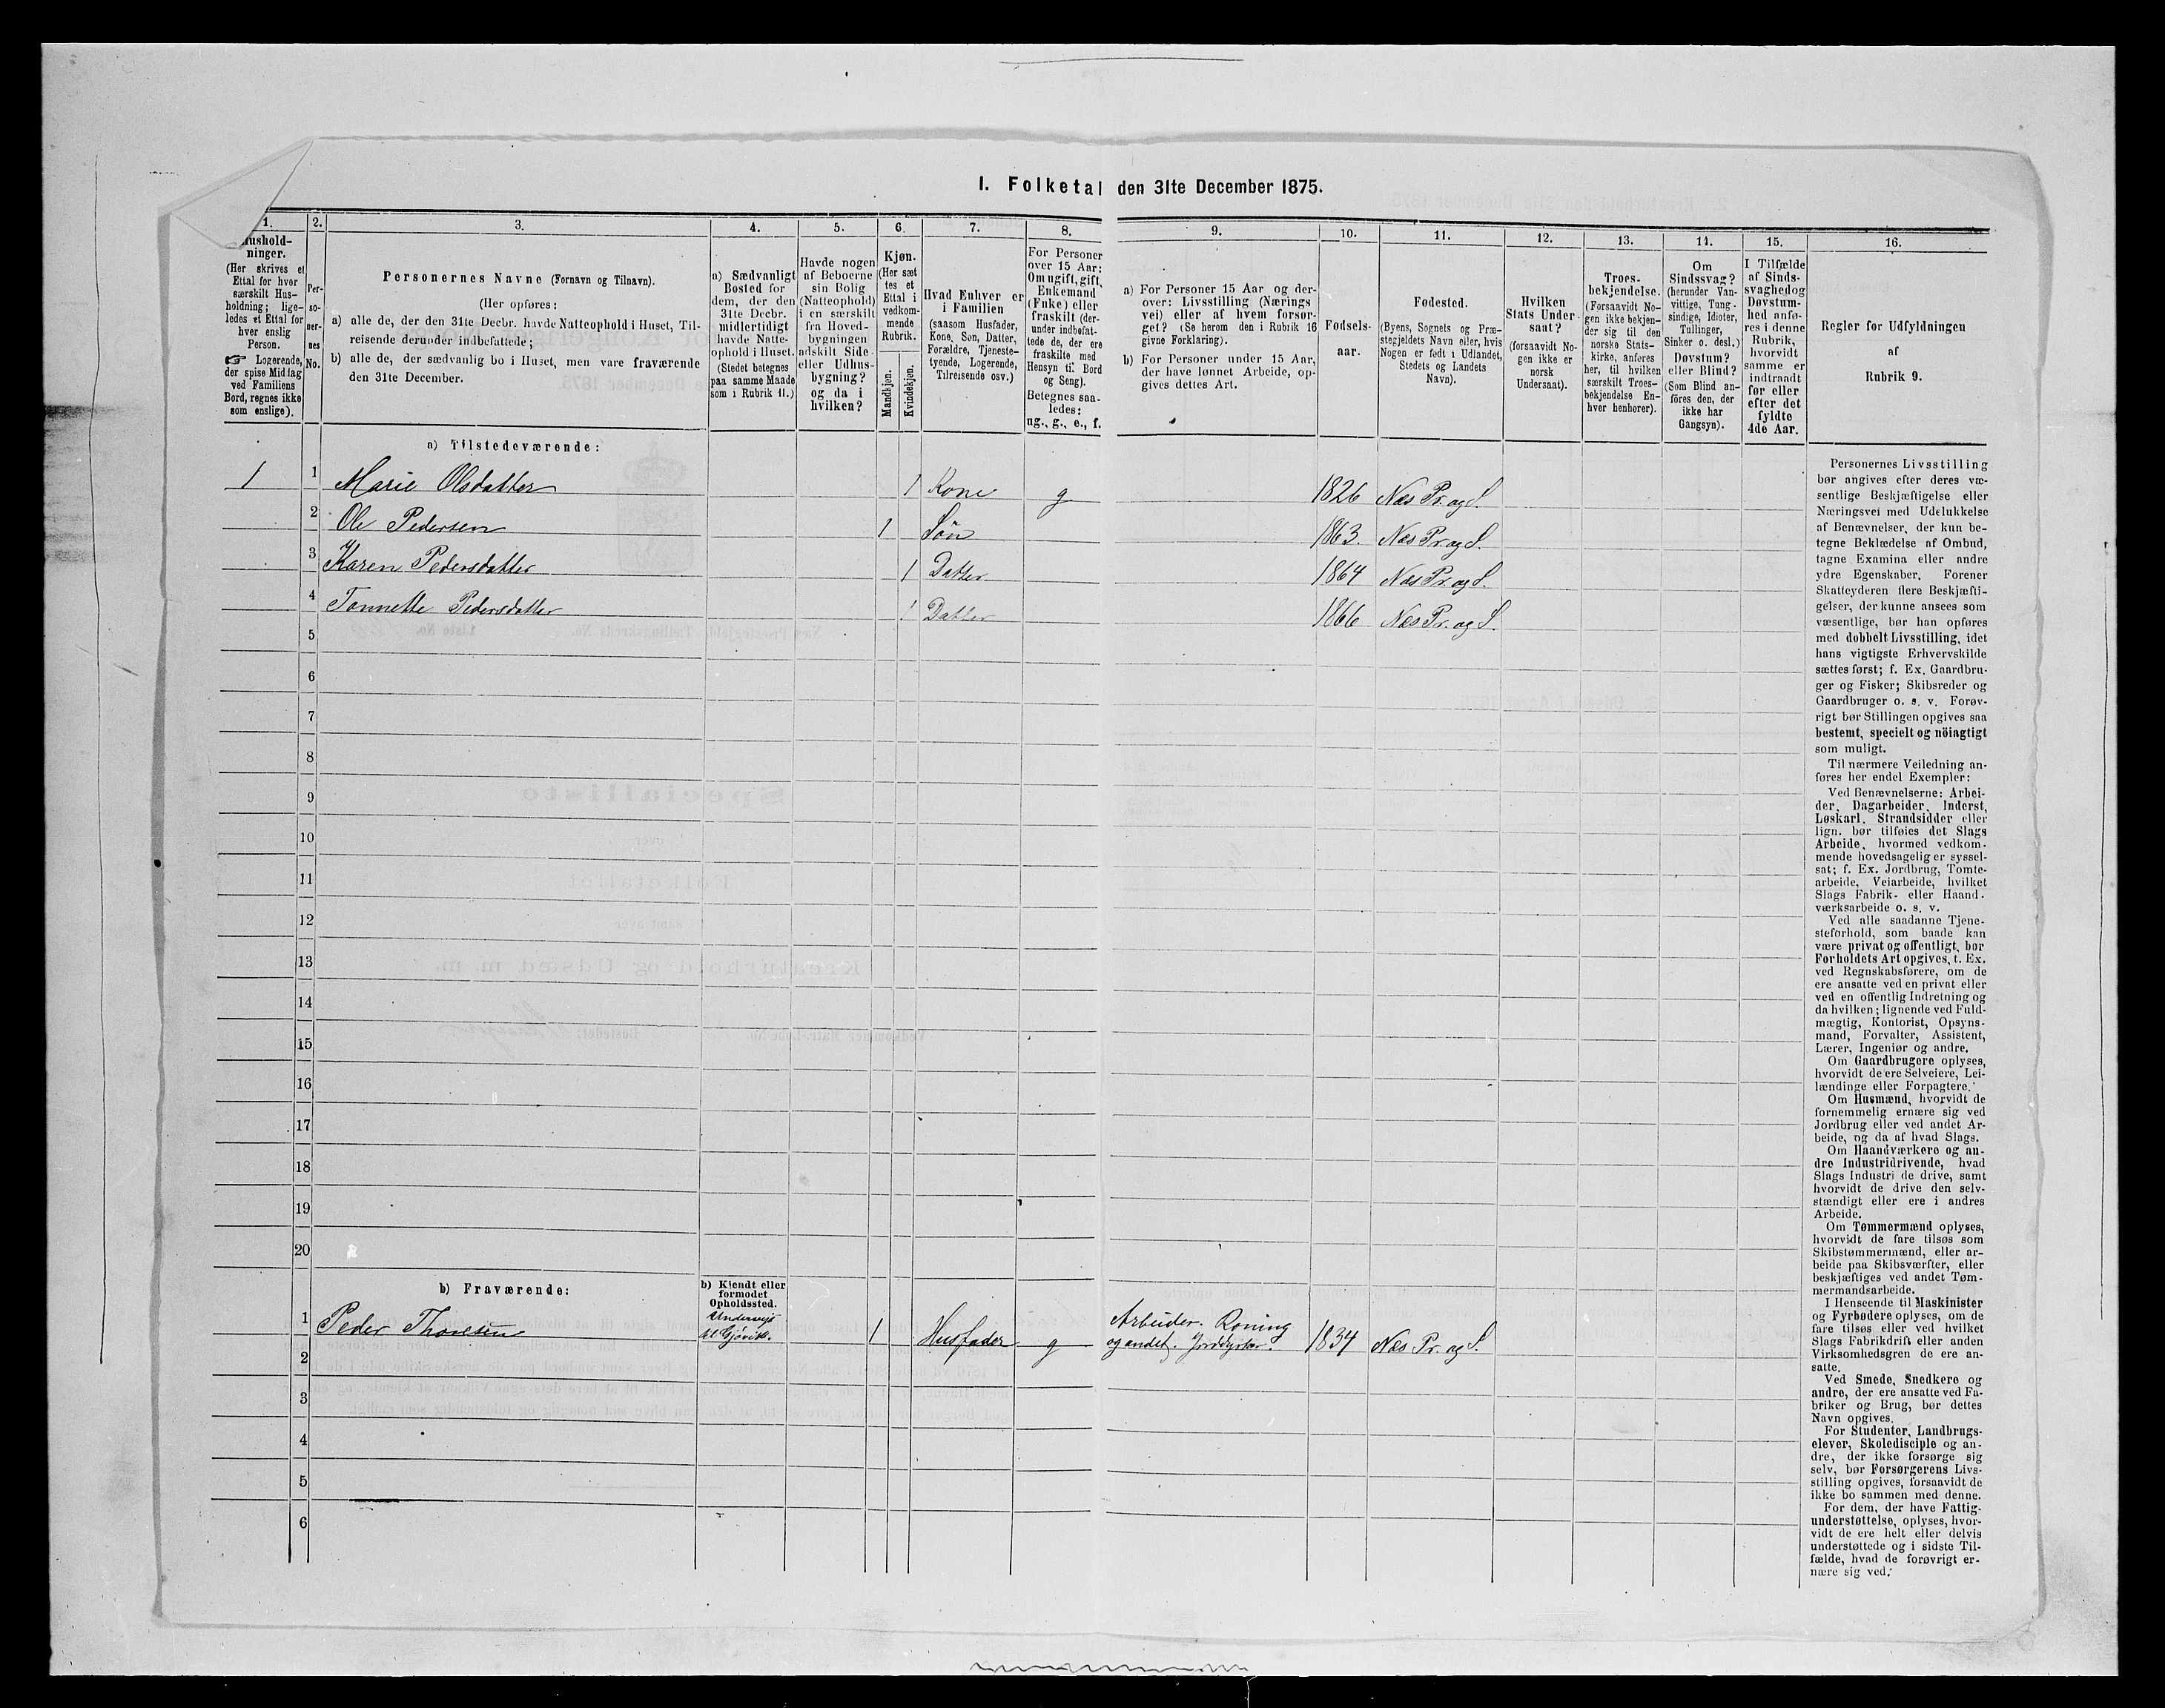 I. Folketal den 31te December 1875.
1.
2.
3.
4.
5.
6.
7.
8.
9.
10.
11.
12.
13.
14.
15.
16.
Hushold-
ninger.
(Her skrives et
Ettal for hver
særskilt Hus-
holdning; lige-
ledes et Ettal for
hver enslig
Person.
☞ Logerende,
der spise Middag
ved Familiens
Bord, regnes ikke
som enslige).
Per-
so-
ner-
nes
No.
Personernes Navne (Fornavn og Tilnavn).
(Her opføres:
a) alle de, der den 31te Decbr. havde Natteophold i Huset, Til-
reisende derunder indbefattede;
b) alle de, der sædvanlig bo i Huset, men vare fraværende
den 31te December.
a) Sædvanligt
Bosted for
dem, der den
31te Decbr.
midlertidigt
havde Natte-
ophold i Huset.
(Stedet betegnes
paa samme Maade
som i Rubrik 11.)
Havde nogen
af Beboerne
sin Bolig
(Natteophold)
i en særskilt
fra Hoved-
bygningen
adskilt Side-
eller Udhus-
bygning?
og da i
hvilken?
Kjøn.
(Her sæt-
tes et
Ettal i
vedkom-
mende
Rubrik.
Mandkjøn.
Kvindekjøn.
Hvad Enhver er
i Familien
(saasom Husfader,
Kone, Søn, Datter,
Forældre, Tjeneste-
tyende, Logerende,
Tilreisende osv.)
For Personer
over 15 Aar:
Om ugift, gift,
Enkemand
(Enke) eller
fraskilt (der-
under indbefat-
tede de, der ere
fraskilte med
Hensyn til Bord
og Seng).
Betegnes saa-
ledes:
ug., g., e., f.
a) For Personer 15 Aar og der-
over: Livsstilling (Nærings
vei) eller af hvem forsør-
get? (Se herom den i Rubrik 16
givne Forklaring).
b) For Personer under 15 Aar,
der have lønnet Arbeide, op-
gives dettes Art.
Fødsels-
aar.
Fødested.
(Byens, Sognets og Præ-
stegjeldets Navn eller, hvis
Nogen er født i Udlandet,
Stedets og Landets
Navn).
Hvilken
Stats Under-
saat?
(forsaavidt No-
gen ikke er
norsk
Undersaat).
Troes-
bekjendelse.
(Forsaavidt No-
gen ikke bekjen-
der sig til den
norske Stats-
kirke, anføres
her, til hvilken
særskilt Troes-
bekjendelse En-
hver henhører).
Om
Sindssvag?
(herunder Van-
vittige, Tung-
sindige, Idioter,
Tullinger,
Sinker o. desl.)
Døvstum?
eller Blind?
(Som Blind an-
føres den, der
ikke har
Gangsyn).
I Tilfælde
af Sinds-
svaghed og
Døvstum-
hed anfø-
res i denne
Rubrik,
hvorvidt
samme er
indtraadt
før eller
efter det
fyldte
4de Aar.
Regler for Udfyldningen
af
Rubrik 9.
a) Tilstedeværende:
1 1 Marie Olsdatter 1 Kone g 1826 Næs Pr. og S.
2 Ole Pedersen 1 Søn 1863. Næs Pr. og S.
3 Karen Pedersdatter 1 Datter 1864 Næs Pr. og S.
4 Tonnette Pedersdatter 1 Datter 1866 Næs Pr. og S.
5
6
7
8
9
10
11
12
13
14
15
16
17
18
19
20
b) Fraværende:
b) Kjendt eller
formodet
Opholdssted.
1 Peder Thoresen Underveis til Gjøvik. 1 Husfader g Arbeider. Roning og andet. 1834 Næs Pr. og S.
2
3
4
5
6
Personernes Livsstilling
bør angives efter deres væ-
sentlige Beskjæftigelse eller
Næringsvei med Udelukkelse
af Benævnelser, der kun be-
tegne Beklædelse af Ombud,
tagne Examina eller andre
ydre Egenskaber. Forener
Skatteyderen flere Beskjæfti-
gelser, der kunne ansees som
væsentlige, bør han opføres
med dobbelt Livsstilling, idet
hans vigtigste Erhvervskilde
sættes først; f. Ex. Gaardbru-
ger og Fisker; Skibsreder og
Gaardbruger o. s. v. Forøv-
rigt bør Stillingen opgives saa
bestemt, specielt og nöiagtigt
som muligt.
Til nærmere Veiledning an-
føres her endel Exempler:
Ved Benævnelserne: Arbei-
der, Dagarbeider, Inderst,
Løskarl, Strandsidder eller
lign. bør tilføies det Slags
Arbeide, hvormed vedkom-
mende hovedsagelig er syssel-
sat; f. Ex. Jordbrug, Tomte-
arbeide, Veiarbeide, hvilket
Slags Fabrik- eller Haand-
værksarbeide o. s. v.
Ved alle saadanne Tjene-
steforhold, som baade kan
være privat og offentligt, bør
Forholdets Art opgives, t. Ex.
ved Regnskabsførere, om de
ere ansatte ved en privat eller
ved en offentlig Indretning og
da hvilken; lignende ved Fuld-
mægtig, Kontorist, Opsyns-
mand, Forvalter, Assistent,
Lærer, Ingeniør og andre.
Om Gaardbrugere oplyses,
hvorvidt de ere Selveiere, Lei-
lændinge eller Forpagtere.
Om Husmænd, hvorvidt de
fornemmelig ernære sig ved
Jordbrug eller ved andet Ar-
beide, og da af hvad Slags.
Om Haandværkere og an-
dre Industridrivende, hvad
Slags Industri de drive, samt
hvorvidt de drive den selv-
stændigt eller ere i andres
Arbeide.
Om Tømmermænd oplyses,
hvorvidt de fare tilsøs som
Skibstømmermænd, eller ar-
beide paa Skibsværfter, eller
beskjæftiges ved andet Tøm-
mermandsarbeide.
I Henseende til Maskinister
og Fyrbødere oplyses, om de
fare tilsøs eller ved hvilket
Slags Fabrikdrift eller anden
Virksomhedsgren de ere an-
satte.
Ved Smede, Snedkere og
andre, der ere ansatte ved Fa-
briker og Brug, bør dettes
Navn opgives.
For Studenter, Landbrugs-
elever, Skoledisciple og an-
dre, der ikke forsørge sig
selv, bør Forsørgerens Livs-
stilling opgives, forsaavidt de
ikke bo sammen med denne.
For dem, der have Fattig-
understøttelse, oplyses, hvor-
vidt de ere helt eller delvis
understøttede og i sidste Til-
fælde, hvad de forøvrigt er-
nære sig ved.